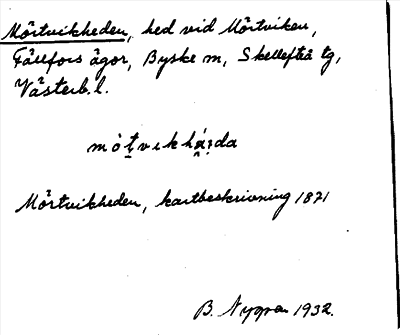 Mörtvikheden, hed vid Mörtviken,
Fällfors ägor, Byske sn, Skellefteå tg,
Västerb. l.
Mörtvikheden, kartbeskrivning 1871
B. Nygren 1932.